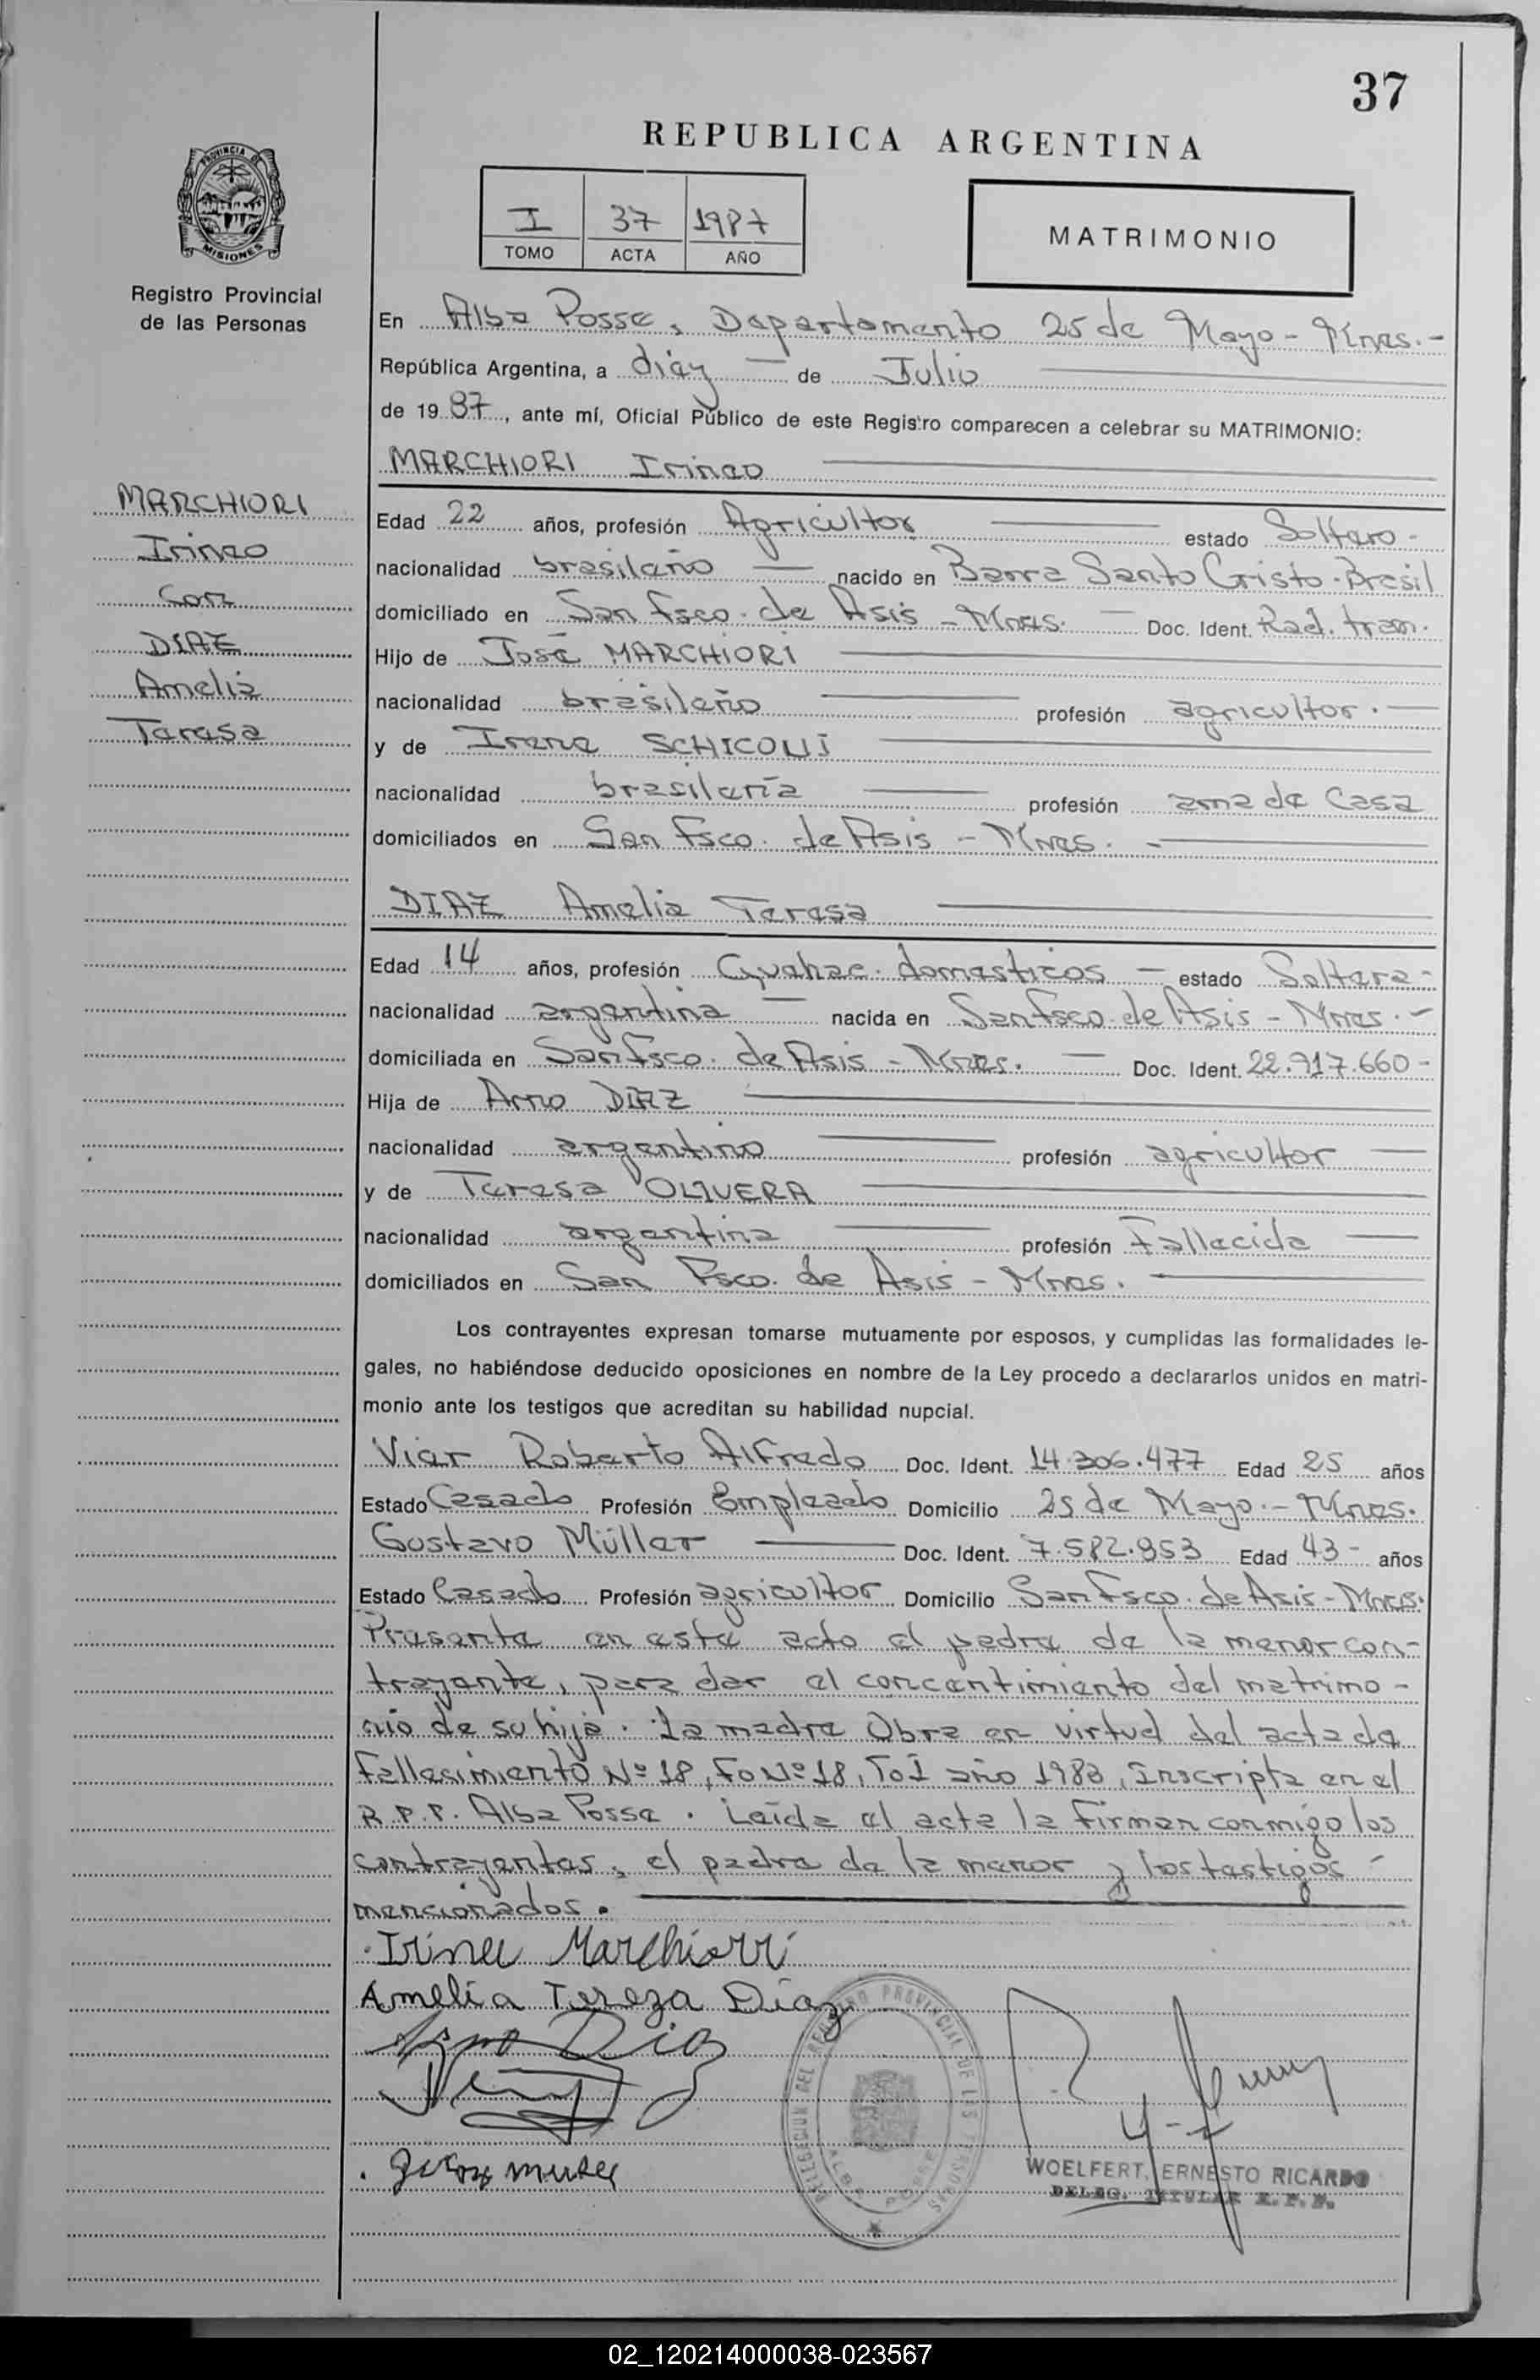 37
REPUBLICA ARGENTINA
PROVINCIA DE
MISIONES
Registro Provincial
de las Personas
I 37 1987
TOMO ACTA AÑO
MATRIMONIO
En Alba Posse, Departamento 25 de Mayo - Mnes.-
República Argentina, a diez — de Julio
de 1987, ante mí, Oficial Público de este Registro comparecen a celebrar su MATRIMONIO:
MARCHIORI Irineo
MARCHIORI
Irineo
Con
DIAZ
Amelia
Teresa
Edad 22 años, profesión Agricultor estado Soltero-
nacionalidad brasileño — nacido en Barra Santo Cristo-Brasil
domiciliado en San Fsco. de Asis - Mnes. — Doc. Ident. Rad. tram.
Hijo de José MARCHIORI
nacionalidad brasileño — profesión agricultor.—
y de Irene SCHICOUI
nacionalidad brasileña — profesión ama de Casa
domiciliados en San Fsco. de Asis - Mnes. -
DIAZ Amelia Teresa
Edad 14 años, profesión Quehac. domesticos — estado Soltera-
nacionalidad argentina — nacida en San Fsco. de Asis - Mnes.-
domiciliada en San Fsco. de Asis - Mnes. — Doc. Ident. 22.917.660-
Hija de Arno DIAZ
nacionalidad argentino — profesión agricultor —
y de Teresa OLIVERA
nacionalidad argentina — profesión Fallecida —
domiciliados en San Fsco. de Asis - Mnes.
Los contrayentes expresan tomarse mutuamente por esposos, y cumplidas las formalidades le-
gales, no habiéndose deducido oposiciones en nombre de la Ley procedo a declararlos unidos en matri-
monio ante los testigos que acreditan su habilidad nupcial.
Vier Roberto Alfredo Doc. Ident. 14.306.477 Edad 25 años
Estado Casado Profesión Empleado Domicilio 25 de Mayo.- Mnes.
Gustavo Müller — Doc. Ident. 7.582.953 Edad 43- años
Estado Casado Profesión agricultor Domicilio San Fsco. de Asis - Mnes.
Presente en este acto el padre de la menor con-
trayente, para dar el concentimiento del matrimo-
nio de su hija. La madre Obra en virtud del acta de
fallesimiento Nº 18, Fo Nº 18, To I año 1983, Inscripta en el
R.P.P. Alba Posse. Leída el acta la firman conmigo los
contrayentes, el padre de la menor y los testigos -
mencionados.
Irineu Marchiorri
Amelia Tereza Díaz
Arno Diaz
DELEGACION DEL REGISTRO PROVINCIAL DE LAS PERSONAS
ALBA POSSE
WOELFERT, ERNESTO RICARDO
DELEG. TITULAR R. P. P.
02_120214000038-023567